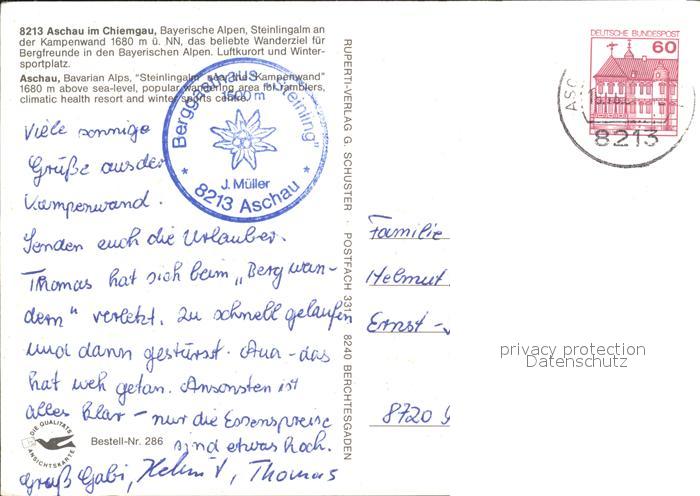 8213 Aschau im Chiemgau, Bayerische Alpen, Steinlingalm an
der Kampenwand 1680 m ü. NN, das beliebte Wanderziel für
Bergfreunde in den Bayerischen Alpen. Luftkurort und Winter-
sportplatz.
Aschau, Bavarian Alps, "Steinlingalm near the Kampenwand"
1680 m above sea-level, popular wandering area for ramblers,
climatic health resort and winter sports centre.
Berggasthaus „Steinling"
1500 m
J. Müller
* 8213 Aschau *
Viele sonnige
Grüße aus der
Kampenwand.
Senden euch die Urlauber.
Thomas hat sich beim „Bergwan-
dern" verletzt. Zu schnell gelaufen
und dann gestürzt. Aua - das
hat weh getan. Ansonsten ist
alles klar - nur die Essenspreise
sind etwas hoch.
Gruß Gabi, Helmut, Thomas
DIE QUALITÄTS
ANSICHTSKARTE
Bestell-Nr. 286
RUPERTI-VERLAG G. SCHUSTER · POSTFACH 3317 · 8240 BERCHTESGADEN
DEUTSCHE BUNDESPOST
60
8213
Familie
Helmut
Ernst -
8720
privacy protection
Datenschutz